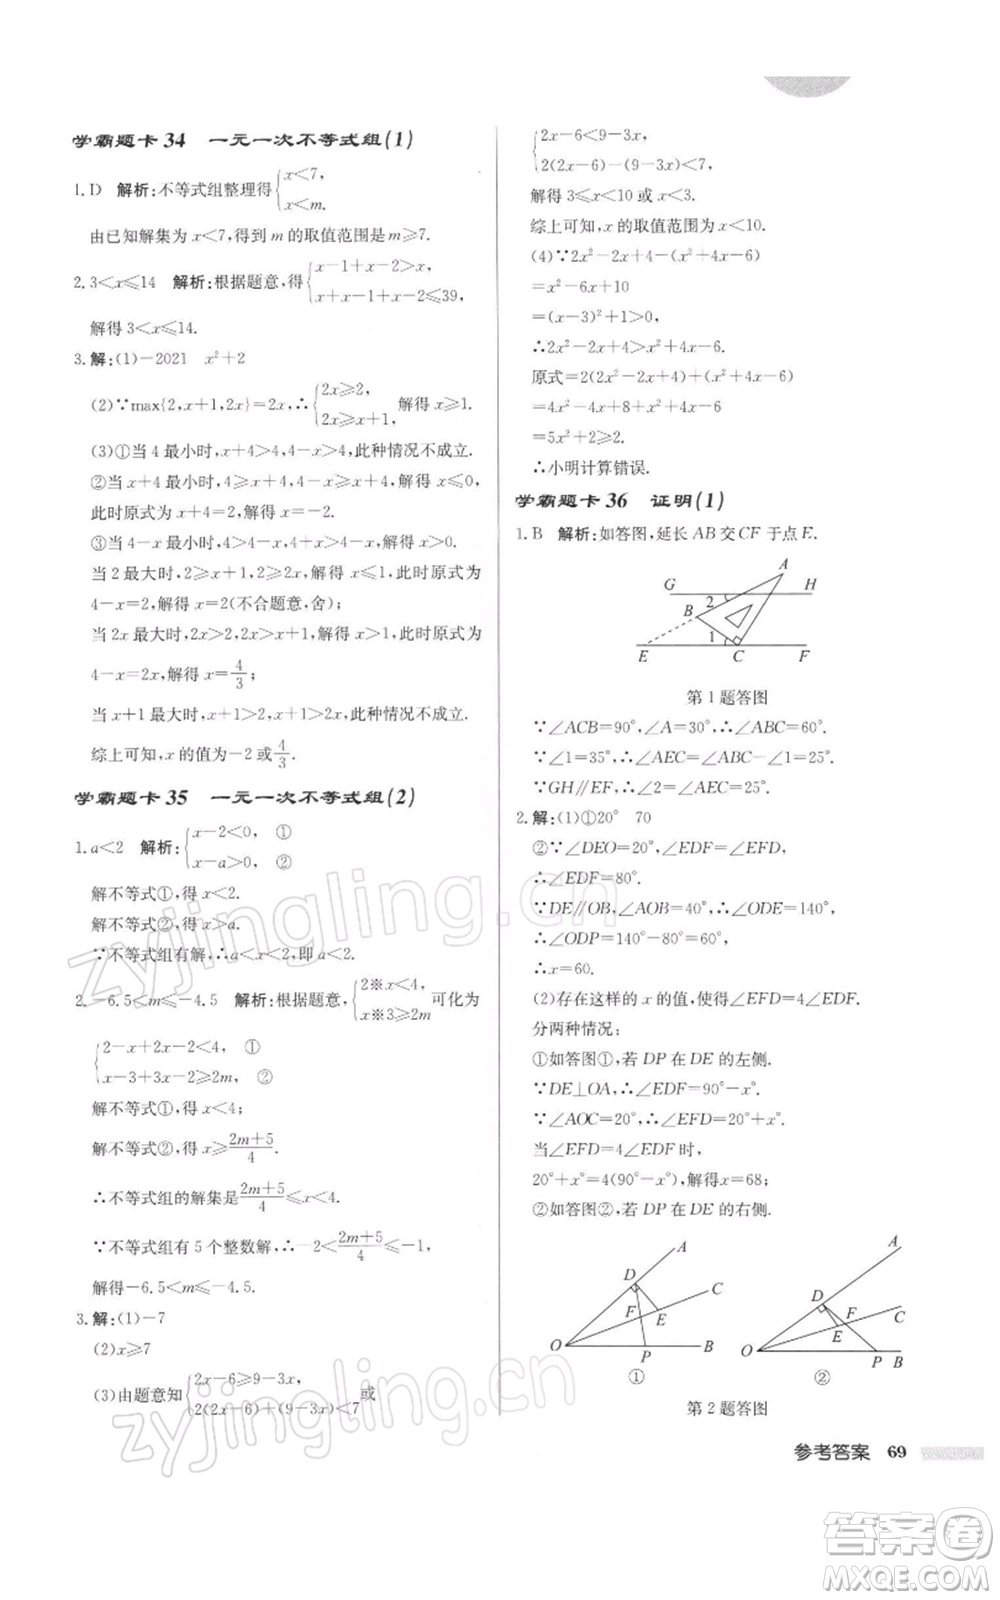 学霸题卡 34 一元一次不等式组(1)
1. D 解析:不等式组整理得{x<7,
x<m.
由已知解集为 x<7,得到 m 的取值范围是 m≥7.
2. 3<x≤14 解析:根据题意,得{x-1+x-2>x,
x+x-1+x-2≤39,
解得 3<x≤14.
3. 解:(1)-2021 x²+2
(2)∵max{2,x+1,2x}=2x,∴{2x≥2,
2x≥x+1, 解得 x≥1.
(3)①当 4 最小时,x+4>4,4-x>4,此种情况不成立.
②当 x+4 最小时,4>x+4,4-x>x+4,解得 x<0,
此时原式为 x+4=2,解得 x=-2.
③当 4-x 最小时,4>4-x,x+4>4-x,解得 x>0.
当 2 最大时,2≥x+1,2≥2x,解得 x≤1,此时原式为
4-x=2,解得 x=2(不合题意,舍);
当 2x 最大时,2x>2,2x>x+1,解得 x>1,此时原式为
4-x=2x,解得 x=4/3;
当 x+1 最大时,x+1>2,x+1>2x,此种情况不成立.
综上可知,x 的值为-2 或 4/3.
学霸题卡 35 一元一次不等式组(2)
1. a<2 解析:{x-2<0, ①
x-a>0, ②
解不等式①,得 x<2.
解不等式②,得 x>a.
∵不等式组有解,∴a<x<2,即 a<2.
2. -6.5<m≤-4.5 解析:根据题意,{2※x<4,
x※3≥2m 可化为
{2-x+2x-2<4, ①
x-3+3x-2≥2m, ②
解不等式①,得 x<4;
解不等式②,得 x≥(2m+5)/4.
∴不等式组的解集是(2m+5)/4≤x<4.
∵不等式组有 5 个整数解,∴-2<(2m+5)/4≤-1,
解得-6.5<m≤-4.5.
3. 解:(1)-7
(2)x≥7
(3)由题意知{2x-6≥9-3x,
2(2x-6)+(9-3x)<7 或
{2x-6<9-3x,
2(2x-6)-(9-3x)<7,
解得 3≤x<10 或 x<3.
综上可知,x 的取值范围为 x<10.
(4)∵2x²-2x+4-(x²+4x-6)
=x²-6x+10
=(x-3)²+1>0,
∴2x²-2x+4>x²+4x-6.
原式=2(2x²-2x+4)+(x²+4x-6)
=4x²-4x+8+x²+4x-6
=5x²+2≥2.
∴小明计算错误.
学霸题卡 36 证明(1)
1. B 解析:如答图,延长 AB 交 CF 于点 E.
A
G
H
2
B
1
E
C
F
第 1 题答图
∵∠ACB=90°,∠A=30°,∴∠ABC=60°.
∵∠1=35°,∴∠AEC=∠ABC-∠1=25°.
∵GH∥EF,∴∠2=∠AEC=25°.
2. 解:(1)①20° 70
②∵∠DEO=20°,∠EDF=∠EFD,
∴∠EDF=80°.
∵DE∥OB,∠AOB=40°,∴∠ODE=140°,
∴∠ODP=140°-80°=60°,
∴x=60.
(2)存在这样的 x 的值,使得∠EFD=4∠EDF.
分两种情况:
①如答图①,若 DP 在 DE 的左侧.
∵DE⊥OA,∴∠EDF=90°-x°.
∵∠AOC=20°,∴∠EFD=20°+x°.
当∠EFD=4∠EDF 时,
20°+x°=4(90°-x°),解得 x=68;
②如答图②,若 DP 在 DE 的右侧.
A
D
C
F
E
O
P
B
①
A
D
C
F
E
O
P
B
②
第 2 题答图
参考答案 69
zyjingling.cn
zyjingling.cn
答案卷
MXQE.COM